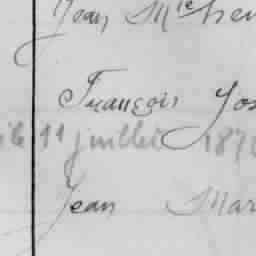 Jean Mie
François Jos
11 juillet 187
Jean Mar